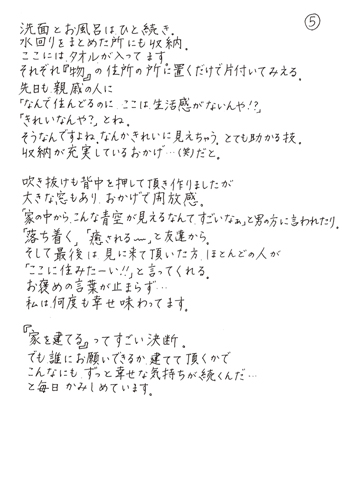 ⑤
洗面とお風呂はひと続き.
水回りをまとめた所にも収納.
ここには、タオルが入ってます
それぞれ『物』の住所の所に置くだけで片付いてみえる.
先日も親戚の人に
「なんで住んどるのに、ここは生活感がないんや!?」
「きれいなんや?」とね.
そうなんですよね.なんかきれいに見えちゃう.とても助かる技.
収納が充実しているおかげ…(笑)だと.
吹き抜けも背中を押して頂き作りましたが
大きな窓もあり、おかげで開放感.
「家の中から、こんな青空が見えるなんて、すごいなぁ」と男の方に言われたり.
「落ち着く」「癒される〜」と友達から.
そして最後は、見に来て頂いた方、ほとんどの人が
「ここに住みたーい!!」と言ってくれる.
お褒めの言葉が止まらず…
私は何度も幸せ味わってます.
『家を建てる』ってすごい決断.
でも誰にお願いできるか、建てて頂くかで
こんなにも、ずっと幸せな気持ちが続くんだ…
と毎日かみしめています.